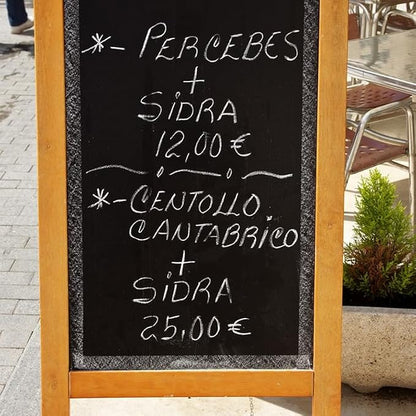 *- PERCEBES
+
SIDRA
12,00 €
*- CENTOLLO
CANTABRICO
+
SIDRA
25,00 €